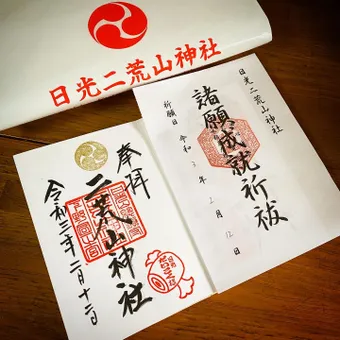 日光二荒山神社
日光二荒山神社
諸願成就祈祓
祈願日 令和 3 年 2 月 12 日
奉拝
二荒山神社
令和三年二月十二日